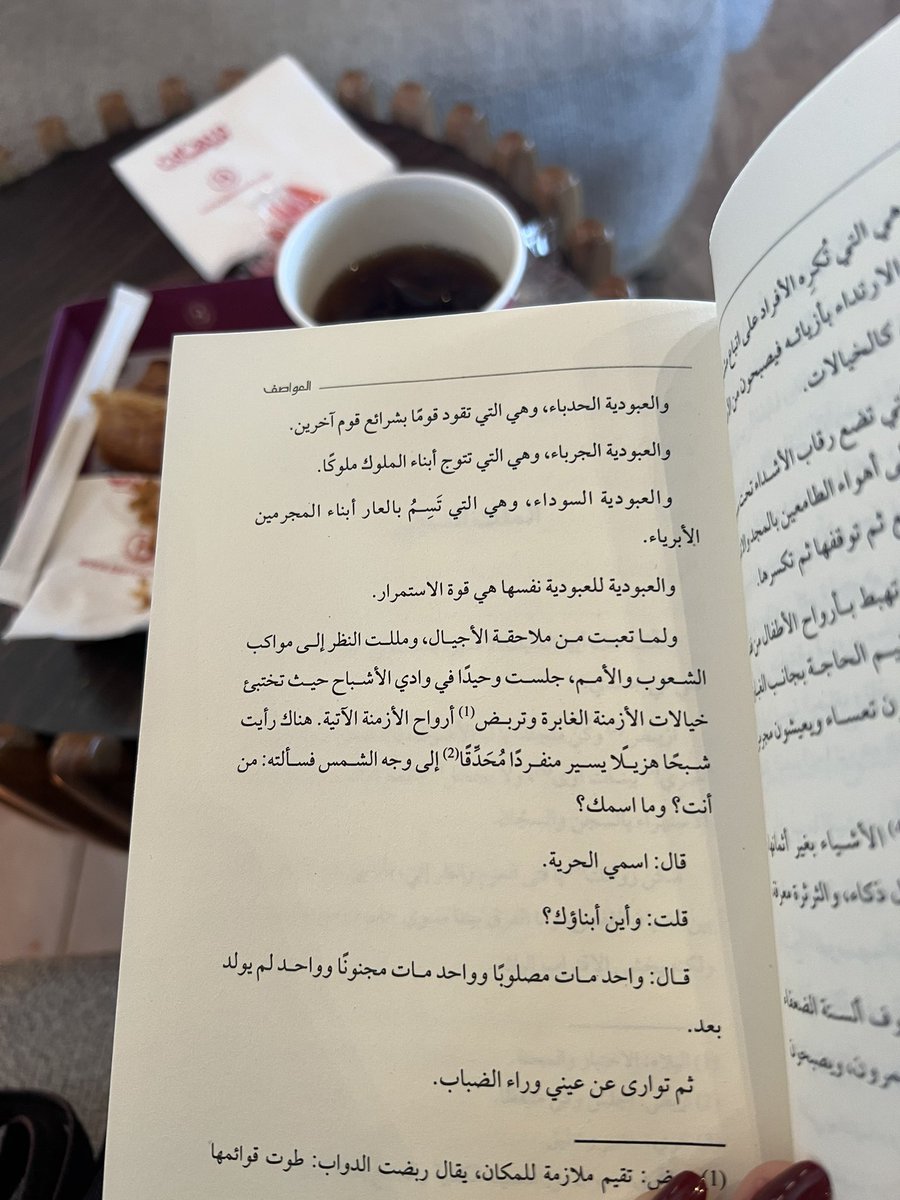 هي التي تُكره الأفراد على اتباع
الارتداء بأزيائه فيصبحون من
كالخيالات.
تي تضع رقاب الأشداء تحت
أهواء الطامعين بالمجد
ثم توقفها ثم تكسرها.
تهبط بأرواح الأطفال من
الحاجة بجانب
تعساء ويعيشون
الأشياء بغير أثمانها
ذكاء، والثرثرة معرفة
ألسنة الضعفاء
ويصبحون
المواصف
والعبودية الحدباء، وهي التي تقود قومًا بشرائع قوم آخرين.
والعبودية الجرباء، وهي التي تتوج أبناء الملوك ملوكًا.
والعبودية السوداء، وهي التي تَسِمُ بالعار أبناء المجرمين
الأبرياء.
والعبودية للعبودية نفسها هي قوة الاستمرار.
ولما تعبت من ملاحقة الأجيال، ومللت النظر إلى مواكب
الشعوب والأمم، جلست وحيدًا في وادي الأشباح حيث تختبئ
خيالات الأزمنة الغابرة وتربض(1) أرواح الأزمنة الآتية. هناك رأيت
شبحًا هزيلًا يسير منفردًا مُحَدِّقًا(2) إلى وجه الشمس فسألته: من
أنت؟ وما اسمك؟
قال: اسمي الحرية.
قلت: وأين أبناؤك؟
قال: واحد مات مصلوبًا وواحد مات مجنونًا وواحد لم يولد
بعد.
ثم توارى عن عيني وراء الضباب.
(1) تقيم ملازمة للمكان، يقال ربضت الدواب: طوت قوائمها